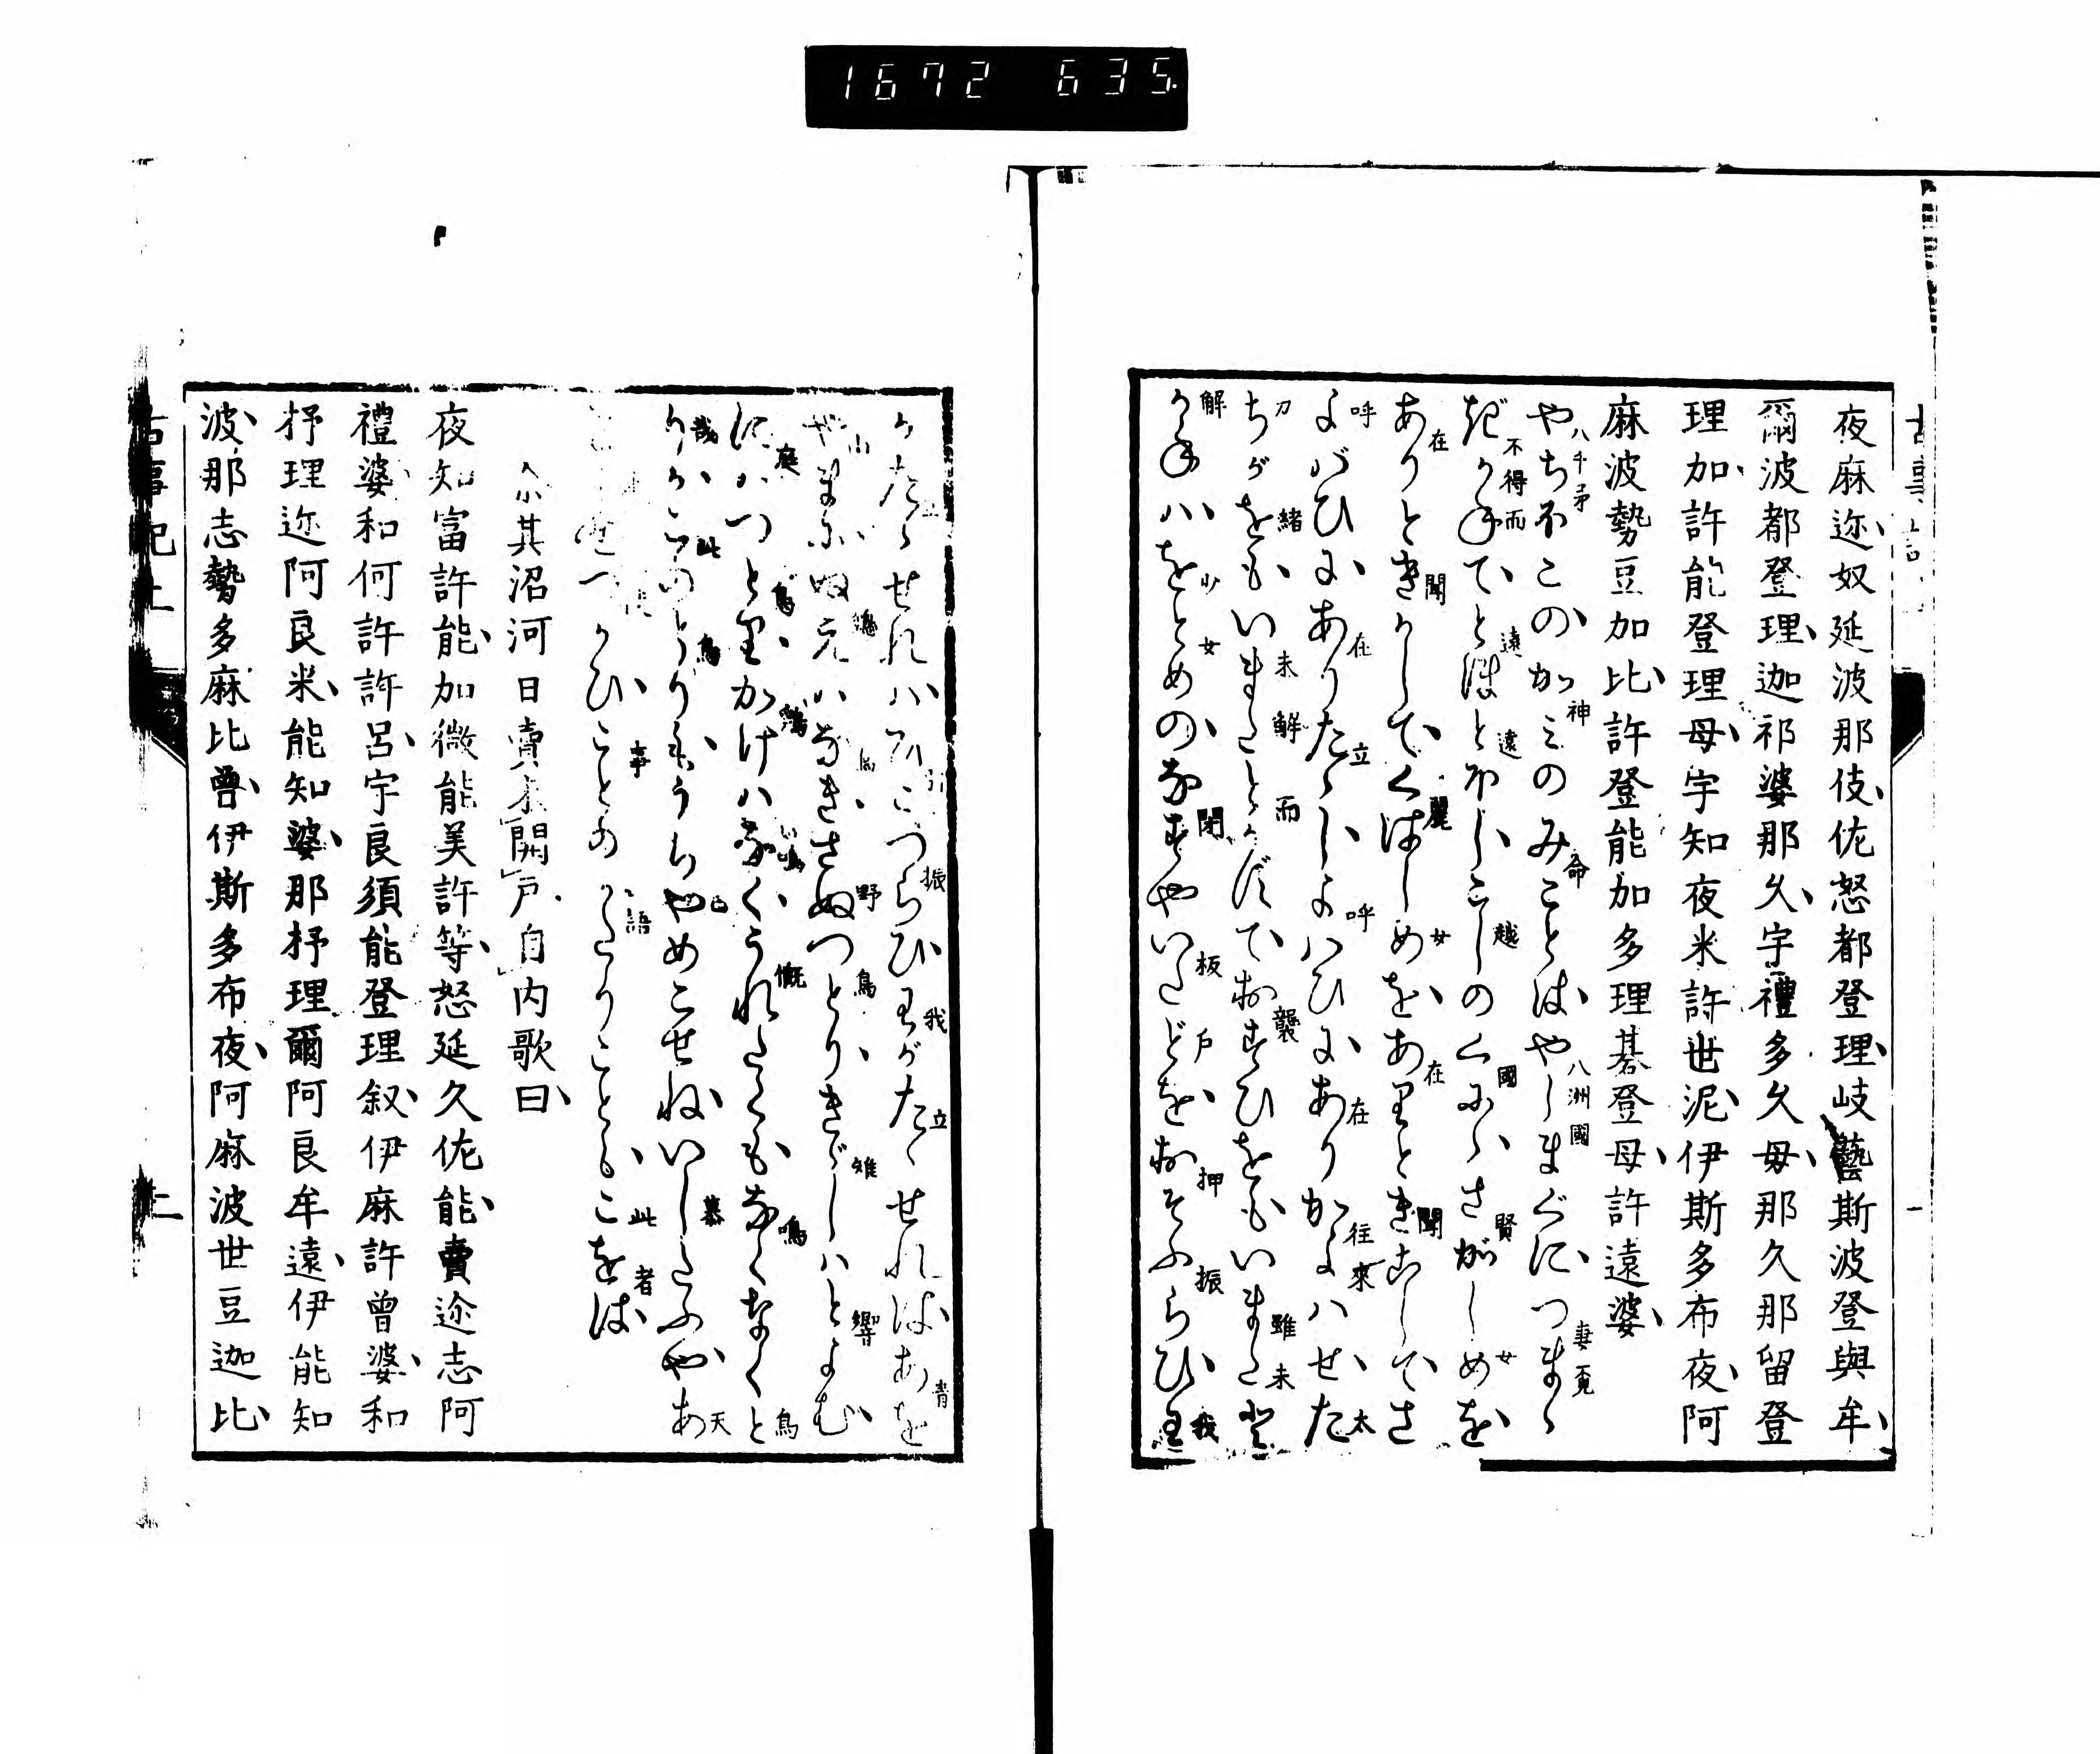 1672 635.
夜麻迩、奴延波那伎、佐怒都登理、岐藝斯波登與牟、
爾波都登理、迦祁婆那久、宇禮多久毋、那久那留登
理加、許能登理母、宇知夜米許世泥、伊斯多布夜、阿
麻波勢豆加比、許登能加多理碁登母、許遠婆、
やちほこの、かみのみことは、やしまぐに、つまゝ
ぎかねて、とほとほし、こしのくにゝ、さがしめを、
ありときかして、くはしめを、ありときこして、さ
よばひに、ありたゝし、よばひに、ありかよはせ、た
ちがをも、いまだとかずて、おすひをも、いまだと
かねは、をとめの、なすやいたどを、おそふらひ、わ
がたゝせれは、ひこつらひ、わがたゝせれば、あを
やまに、ぬえはなき、さぬつとり、きぎしはとよむ、
にはつとり、かけはなく、うれたくも、なくなくと
りか、このとりも、うちやめこせね、いしたふや、あ
つかひ、ことの かたりことも、こをば
尒其沼河日賣未開戸、自内歌曰、
夜知富許能、加微能美許等、怒延久佐能、賣迩志阿
禮婆、和何許許呂、宇良須能登理叙、伊麻許曾婆、和
杼理迩阿良米、能知婆、那杼理爾阿良牟遠、伊能知
波、那志勢多麻比曾、伊斯多布夜、阿麻波世豆迦比、
古事記上